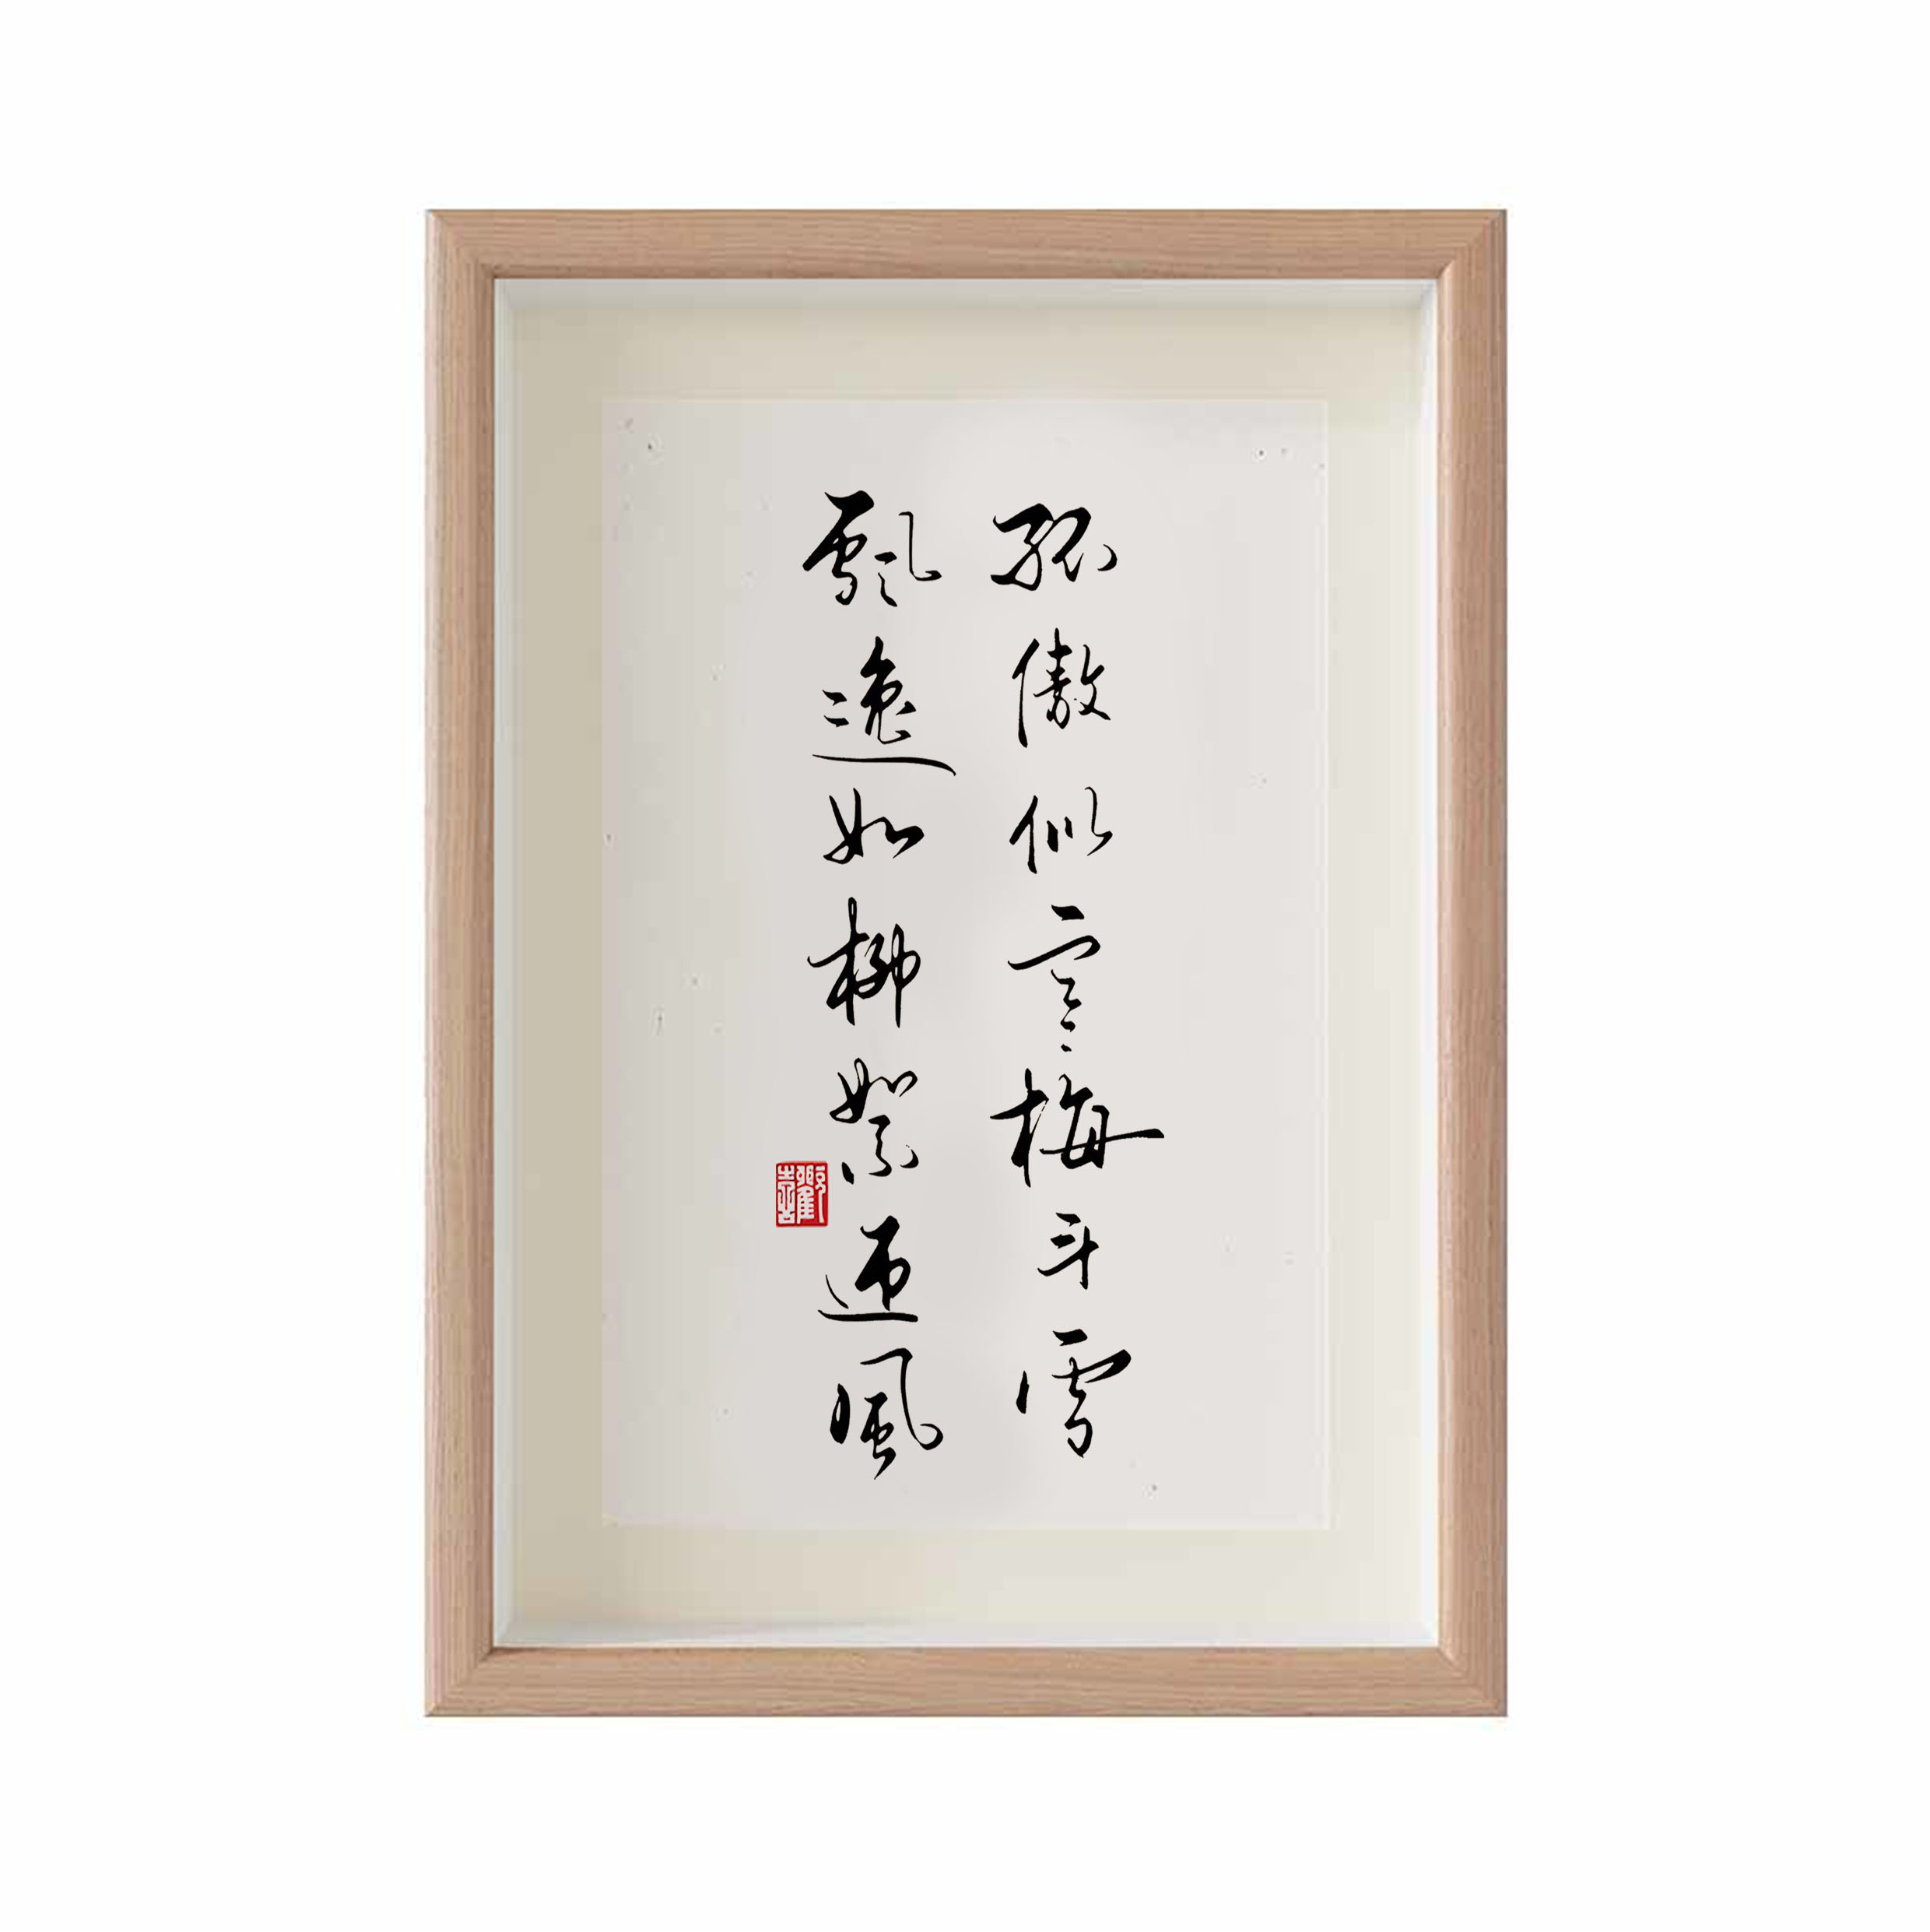 孤傲似寒梅斗雪
飄逸如柳絮迎風
歡喜